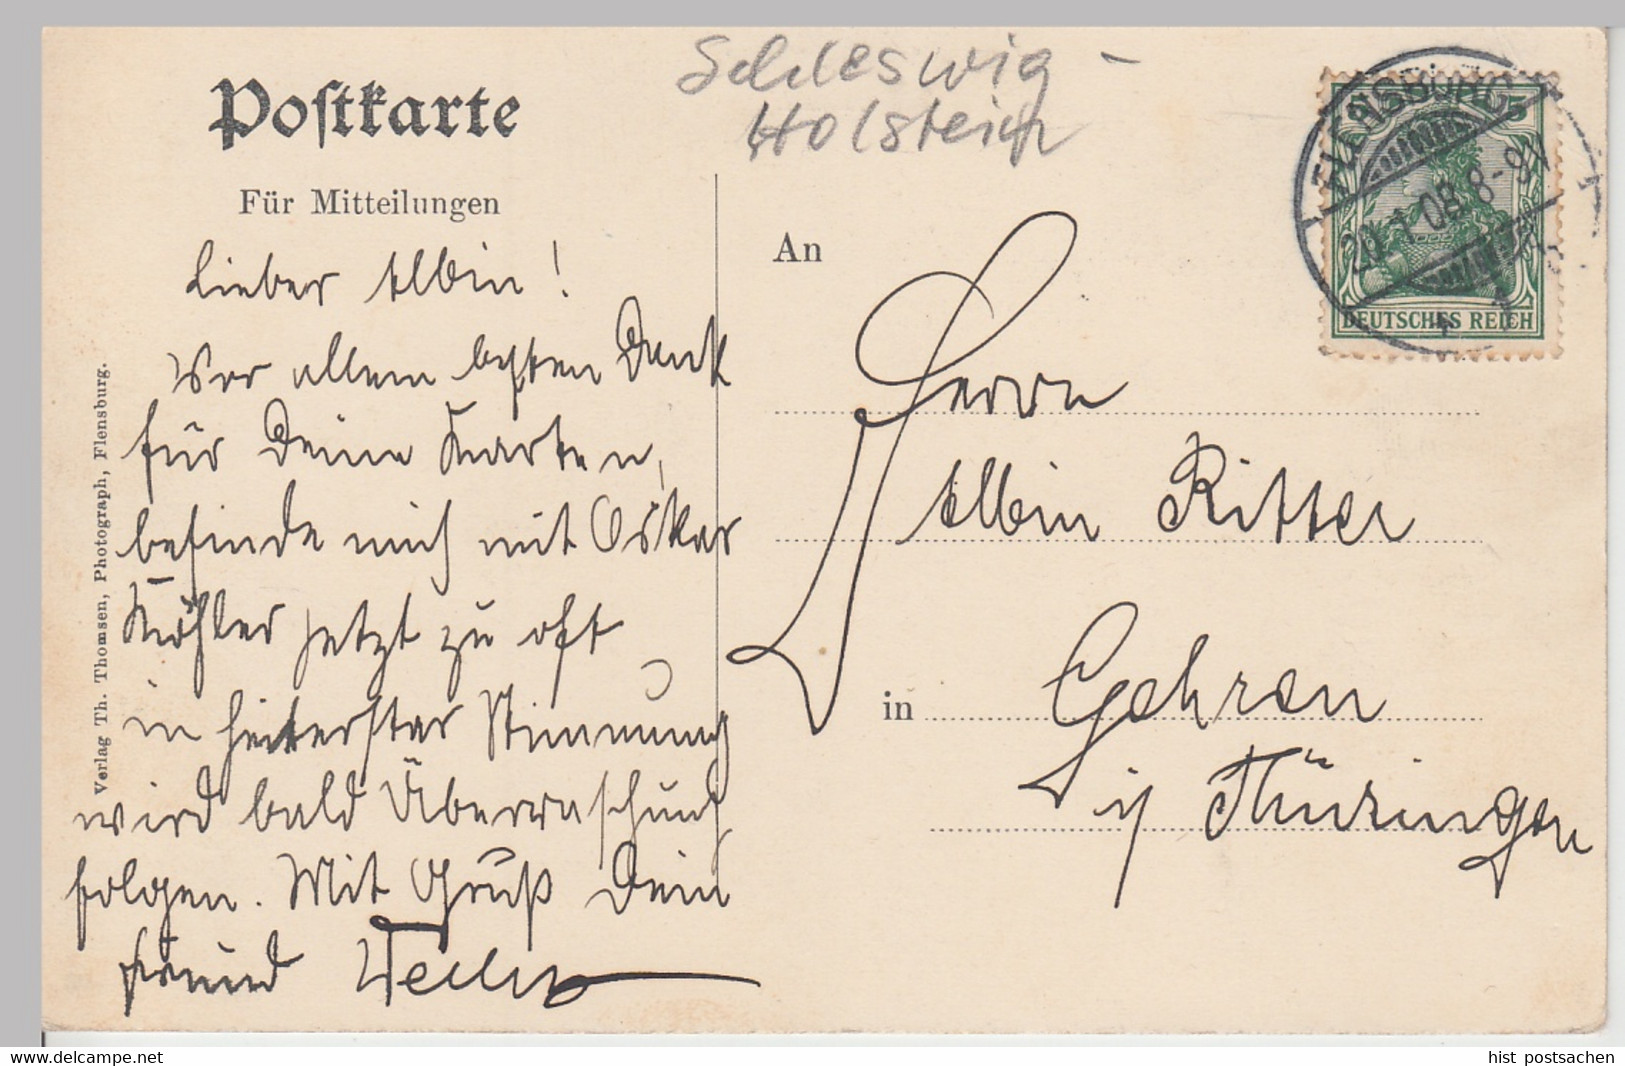 Postkarte
Schleswig-
Holstein
Für Mitteilungen
Lieber Albin!
Vor allem besten Dank
für Deine Karten,
befinde mich mit Oskar
Köhler jetzt zu oft
in heiterster Stimmung
wird bald Überraschung
folgen. Mit Gruß Dein
Freund
Verlag Th. Thomsen, Photograph, Flensburg.
FLENSBURG
20.1.08.8-9V
5
DEUTSCHES REICH
An
Herrn
Albin Ritter
in Gehren
i/ Thüringen
delcampe.net
hist postsachen